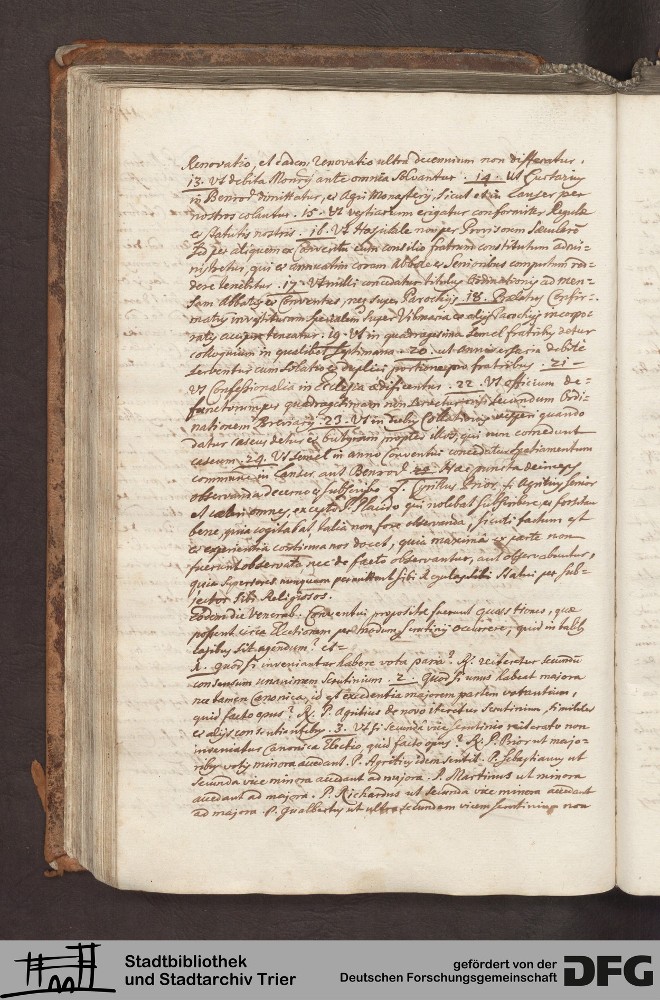 Renovatio, et eadem renovatio ultra decennium non differatur.
13. Ut debita Monrij ante omnia solvantur. 14. Ut Custarius
in Benrod dimittatur, et Agri Monasterij sicut et in Lanser per
nostros colantur. 15. Ut vestiarium erigatur conformiter Regulae
et statutis nostris. 16. Ut Hospitale non per Provisorem saecularem
sed per aliquem ex Conventu cum consilio fratrum constitutum admi-
nistretur, qui et annuatim coram Abbate et Senioribus computum red-
dere tenebitur. 17. Ut nulli concedatur titulus Ordinationis ad men-
sam Abbatis et Conventus, neq super Parochijs. 18. Praelatus Confir-
matus investituram specialem super Urbinaria et alijs Parochijs incorpo-
ratis accipere teneatur. 19. Ut in quadragesima semel fratribus detur
colloquium in qualibet septimana. 20. ut anniversaria debite
serventur cum solatio et duplici portione pro fratribus. 21.
Ut Confessionalia in Ecclesia aedificentur. 22. Ut officium de-
functorum per quadragesimam non secundum Ordi-
nationem Breviarij. 23. Ut in diebus Collationis vesperi quando
datur caseus detur et butyrum propter illos, qui non comedunt
caseum. 24. Ut semel in anno Conventui concedatur spatiamentum
commune in Lanser aut Benrod. Haec puncta
observanda decerno et subscribo f. Cyrillus Prior, f. Agritius senior
et caeteri omnes, excepto P. Placido qui nolebat subscribere, et forsitan
bene, quia cogitabat, talia non fore observanda, sicuti factum est
et experientia continua nos docet, quia maxima ex parte non
fuerunt observata nec de facto observantur, aut observabuntur,
quia Superiores nunquam permittent sibi statui per sub-
jectos sibi Religiosos.
Eodem die Venerab. Conventui propositae fuerunt quaestiones, quae
possent circa Electionem per modum scrutinij occurrere, quid in talibus
casibus sit agendum? et
1. quod si inveniantur habere vota paria? R. reiteretur secundum
consensum unanimem scrutinium. 2. Quod si unus habeat majora
nec tamen Canonica, id est excedentia majorem partem votantium,
quid facto opus? R. P. Agritius de novo iteretur scrutinium, similiter
et alijs consentientibus. 3. Ut si secunda vice scrutinio reiterato non
inveniatur Canonica Electio, quid facto opus? R. P. Prior ut majo-
ribus votis minora accedant. P. Agritius idem sentit. P. Sebastianus ut
secunda vice minora accedant ad majora. P. Martinus ut minora
accedant ad majora. P. Richardus ut secunda vice minora accedant
ad majora. P. Gualbertus ut ultra secundam vicem scrutinium non
Stadtbibliothek
und Stadtarchiv Trier
gefördert von der
Deutschen Forschungsgemeinschaft
DFG